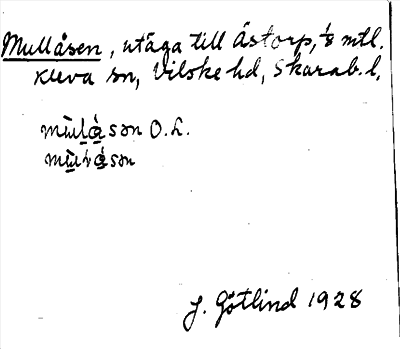 Mullåsen, utäga till Åstorp, ⅛ mtl.
Kleva sn, Vilske hd, Skarab. l.
mùlå̀sən O.L.
mùlå̀sən
J. Götlind 1928